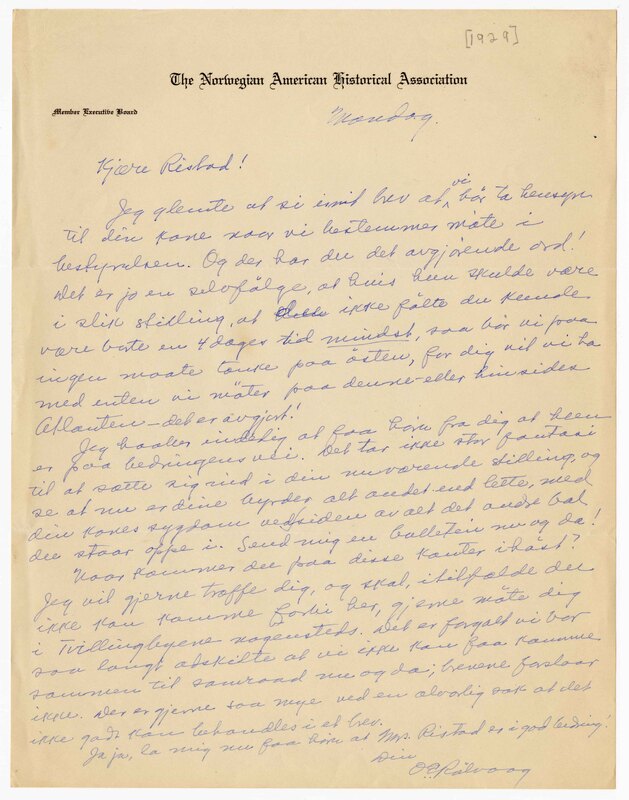 [1929]
The Norwegian American Historical Association
Member Executive Board
Mandag.
Kjære Ristad!
Jeg glemte at si i mit brev at vi bör ta hensyn
til din kone naar vi bestemmer möte i
bestyrelsen. Og der har du det avgjörende ord!
Det er jo en selvfölge, at hvis hun skulde være
i slik stilling, at ikke fölte du kunde
være borte en 4 dages tid mindst, saa bör vi paa
ingen maate tænke paa östen, for dig vil vi ha
med enten vi möter paa denne eller hin sides
Atlanten – det er avgjort!
Jeg haaber inderlig at faa hörn fra dig at hun
er paa bedringens vei. Det tar ikke stor fantasi
til at sætte sig ind i din nuværende stilling, og
se at nu er dine byrder alt andet end lette, med
din kones sygdom ved siden av alt det andre
du staar oppe i. Send mig en bulletin nu og da!
Naar kommer du paa disse kanter ihöst?
Jeg vil gjerne træffe dig, og skal, i tilfælde du
ikke kan komme forbi her, gjerne möte dig
i Tvillingbyene nogensteds. Det er forgalt vi bor
saa langt adskilte at vi ikke kan faa komme
sammen til samraad nu og da; brevene forslaar
ikke. Der er gjerne saa mye ved en alvorlig sak at det
ikke godt kan behandles i et brev.
Ja ja, la mig nu faa hörn at Mrs. Ristad er i god bedring!
Din
O E Rölvaag